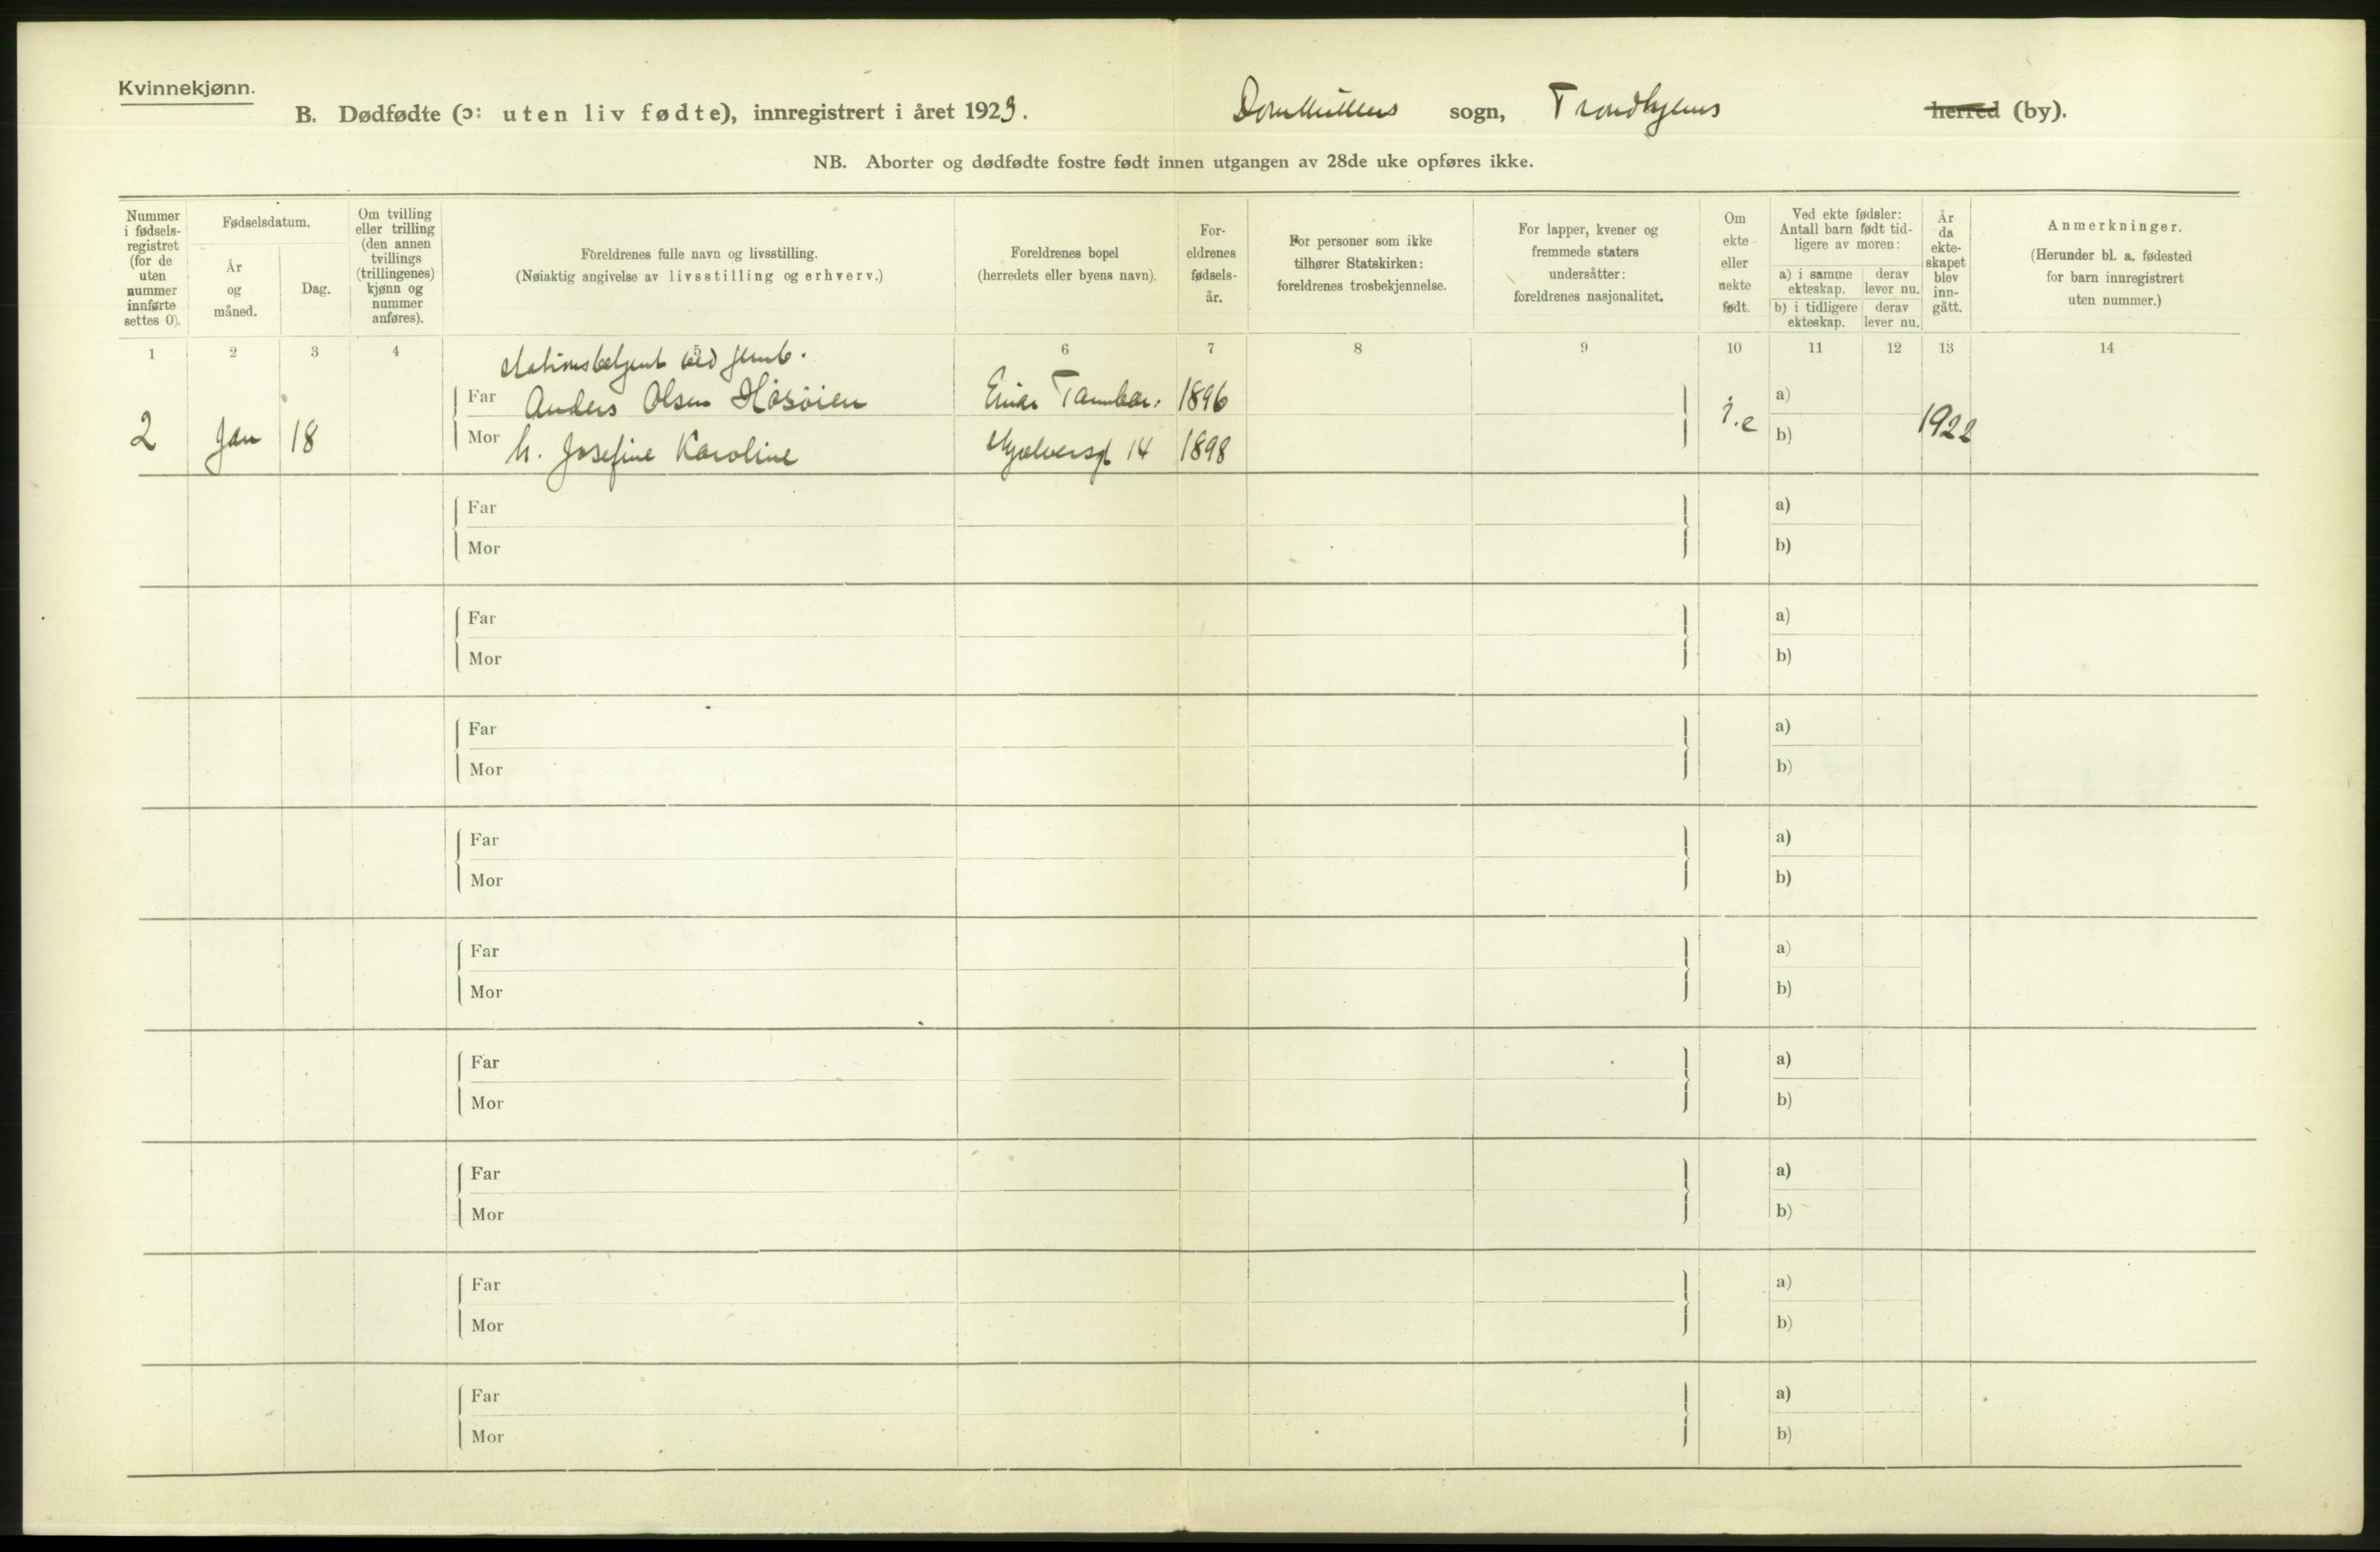 Kvinnekjønn.
B. Dødfødte (ɔ: uten liv fødte), innregistrert i året 1923. sogn, Trondhjems herred (by).
NB. Aborter og dødfødte fostre født innen utgangen av 28de uke opføres ikke.
Nummer i fødsels- registret (for de uten nummer innførte settes 0).
Fødselsdatum.
År og måned.
Dag.
Om tvilling eller trilling (den annen tvillings (trillingenes) kjønn og nummer anføres).
Foreldrenes fulle navn og livsstilling.
(Nøiaktig angivelse av livsstilling og erhverv.)
Foreldrenes bopel
(herredets eller byens navn).
For- eldrenes fødsels- år.
For personer som ikke tilhører Statskirken: foreldrenes trosbekjennelse.
For lapper, kvener og fremmede staters undersåtter: foreldrenes nasjonalitet.
Om ekte eller uekte født.
Ved ekte fødsler: Antall barn født tid- ligere av moren:
a) i samme ekteskap.
derav lever nu.
b) i tidligere ekteskap.
derav lever nu.
År da ekte- skapet blev inn- gått.
Anmerkninger.
(Herunder bl. a. fødested for barn innregistrert uten nummer.)
1 2 3 4 5 6 7 8 9 10 11 12 13 14
stationsbetjent ved jernb.
Far Anders Olsen Høsöien Einar Tambar. 1896 a)
2 Jan 18 Mor h. Josefine Karoline 14 1898 i.e b) 1922
Far a)
Mor b)
Far a)
Mor b)
Far a)
Mor b)
Far a)
Mor b)
Far a)
Mor b)
Far a)
Mor b)
Far a)
Mor b)
Far a)
Mor b)
Far a)
Mor b)